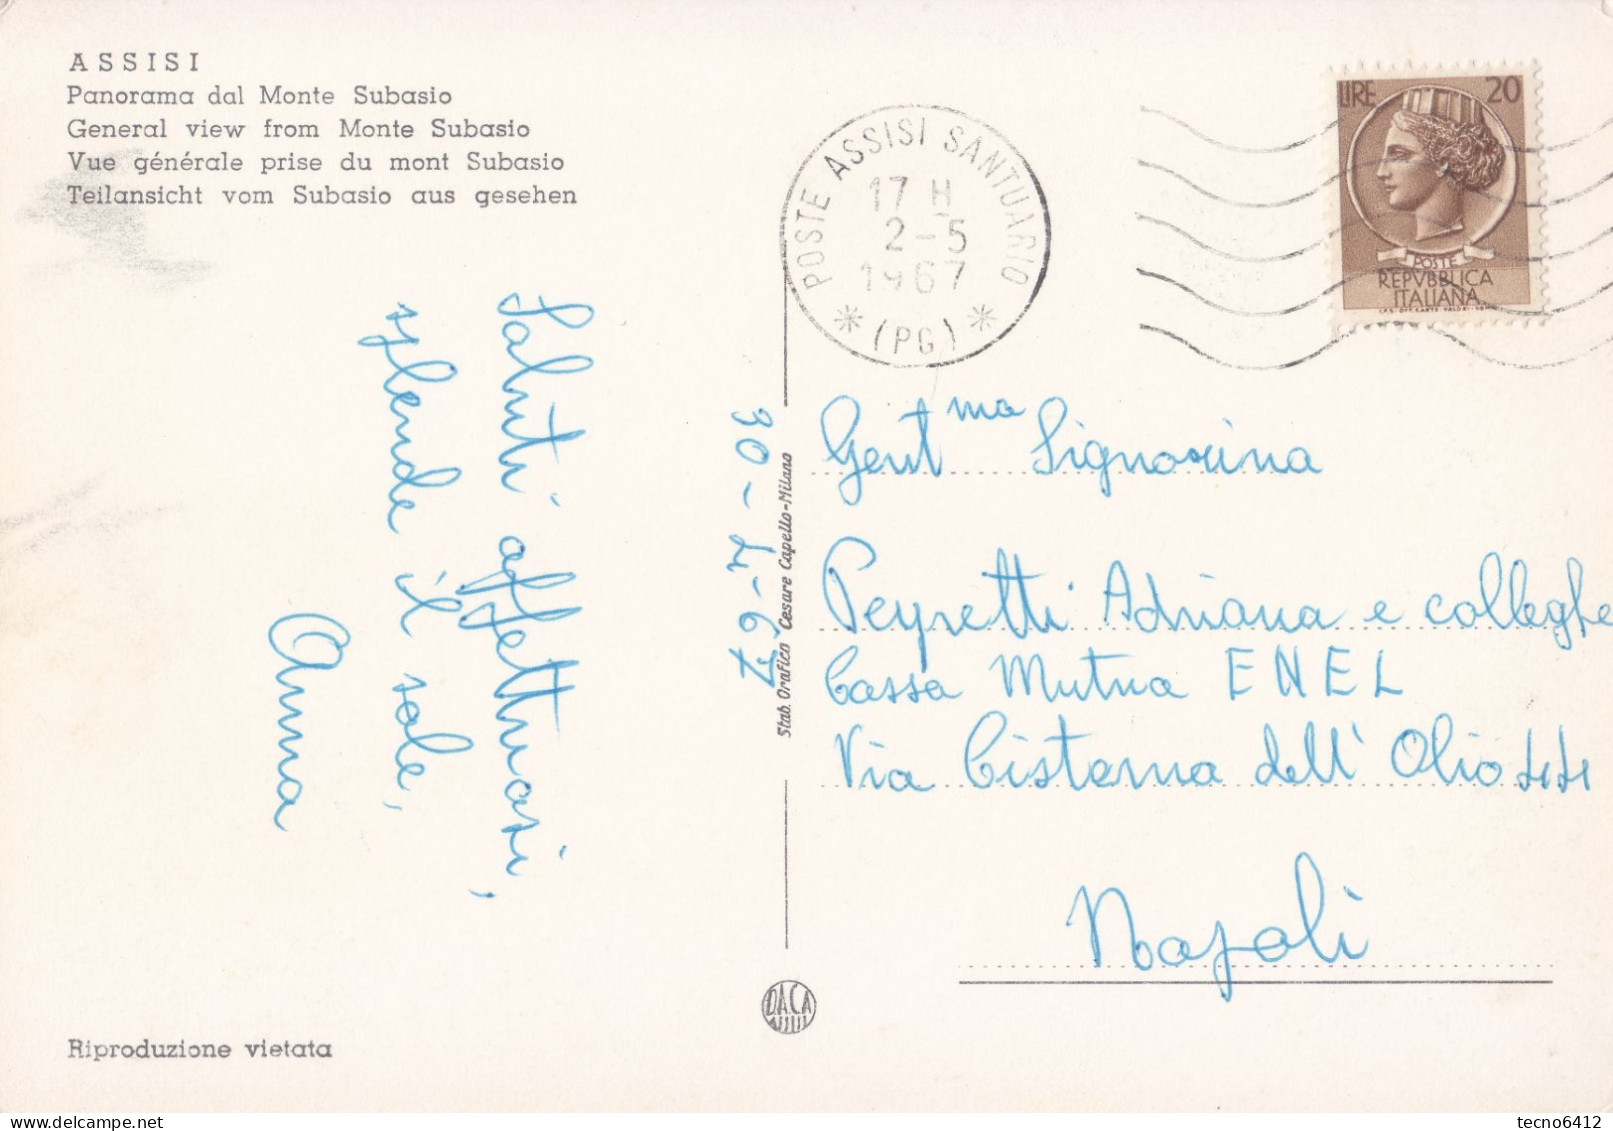 ASSISI
Panorama dal Monte Subasio
General view from Monte Subasio
Vue générale prise du mont Subasio
Teilansicht vom Subasio aus gesehen
Saluti affettuosi,
splende il sole,
Anna
Riproduzione vietata
30-4-67
Stab. Grafico Cesare Capello-Milano
D.A.C.A
ASSISI
POSTE ASSISI SANTUARIO
17 H
2-5
1967
* (PG) *
LIRE 20
POSTE
REPVBBLICA
ITALIANA
Gent ma Signorina
Peyretti Adriana e colleghe
Cassa Mutua ENEL
Via Cisterna dell'Olio 44
Napoli
tecno6412